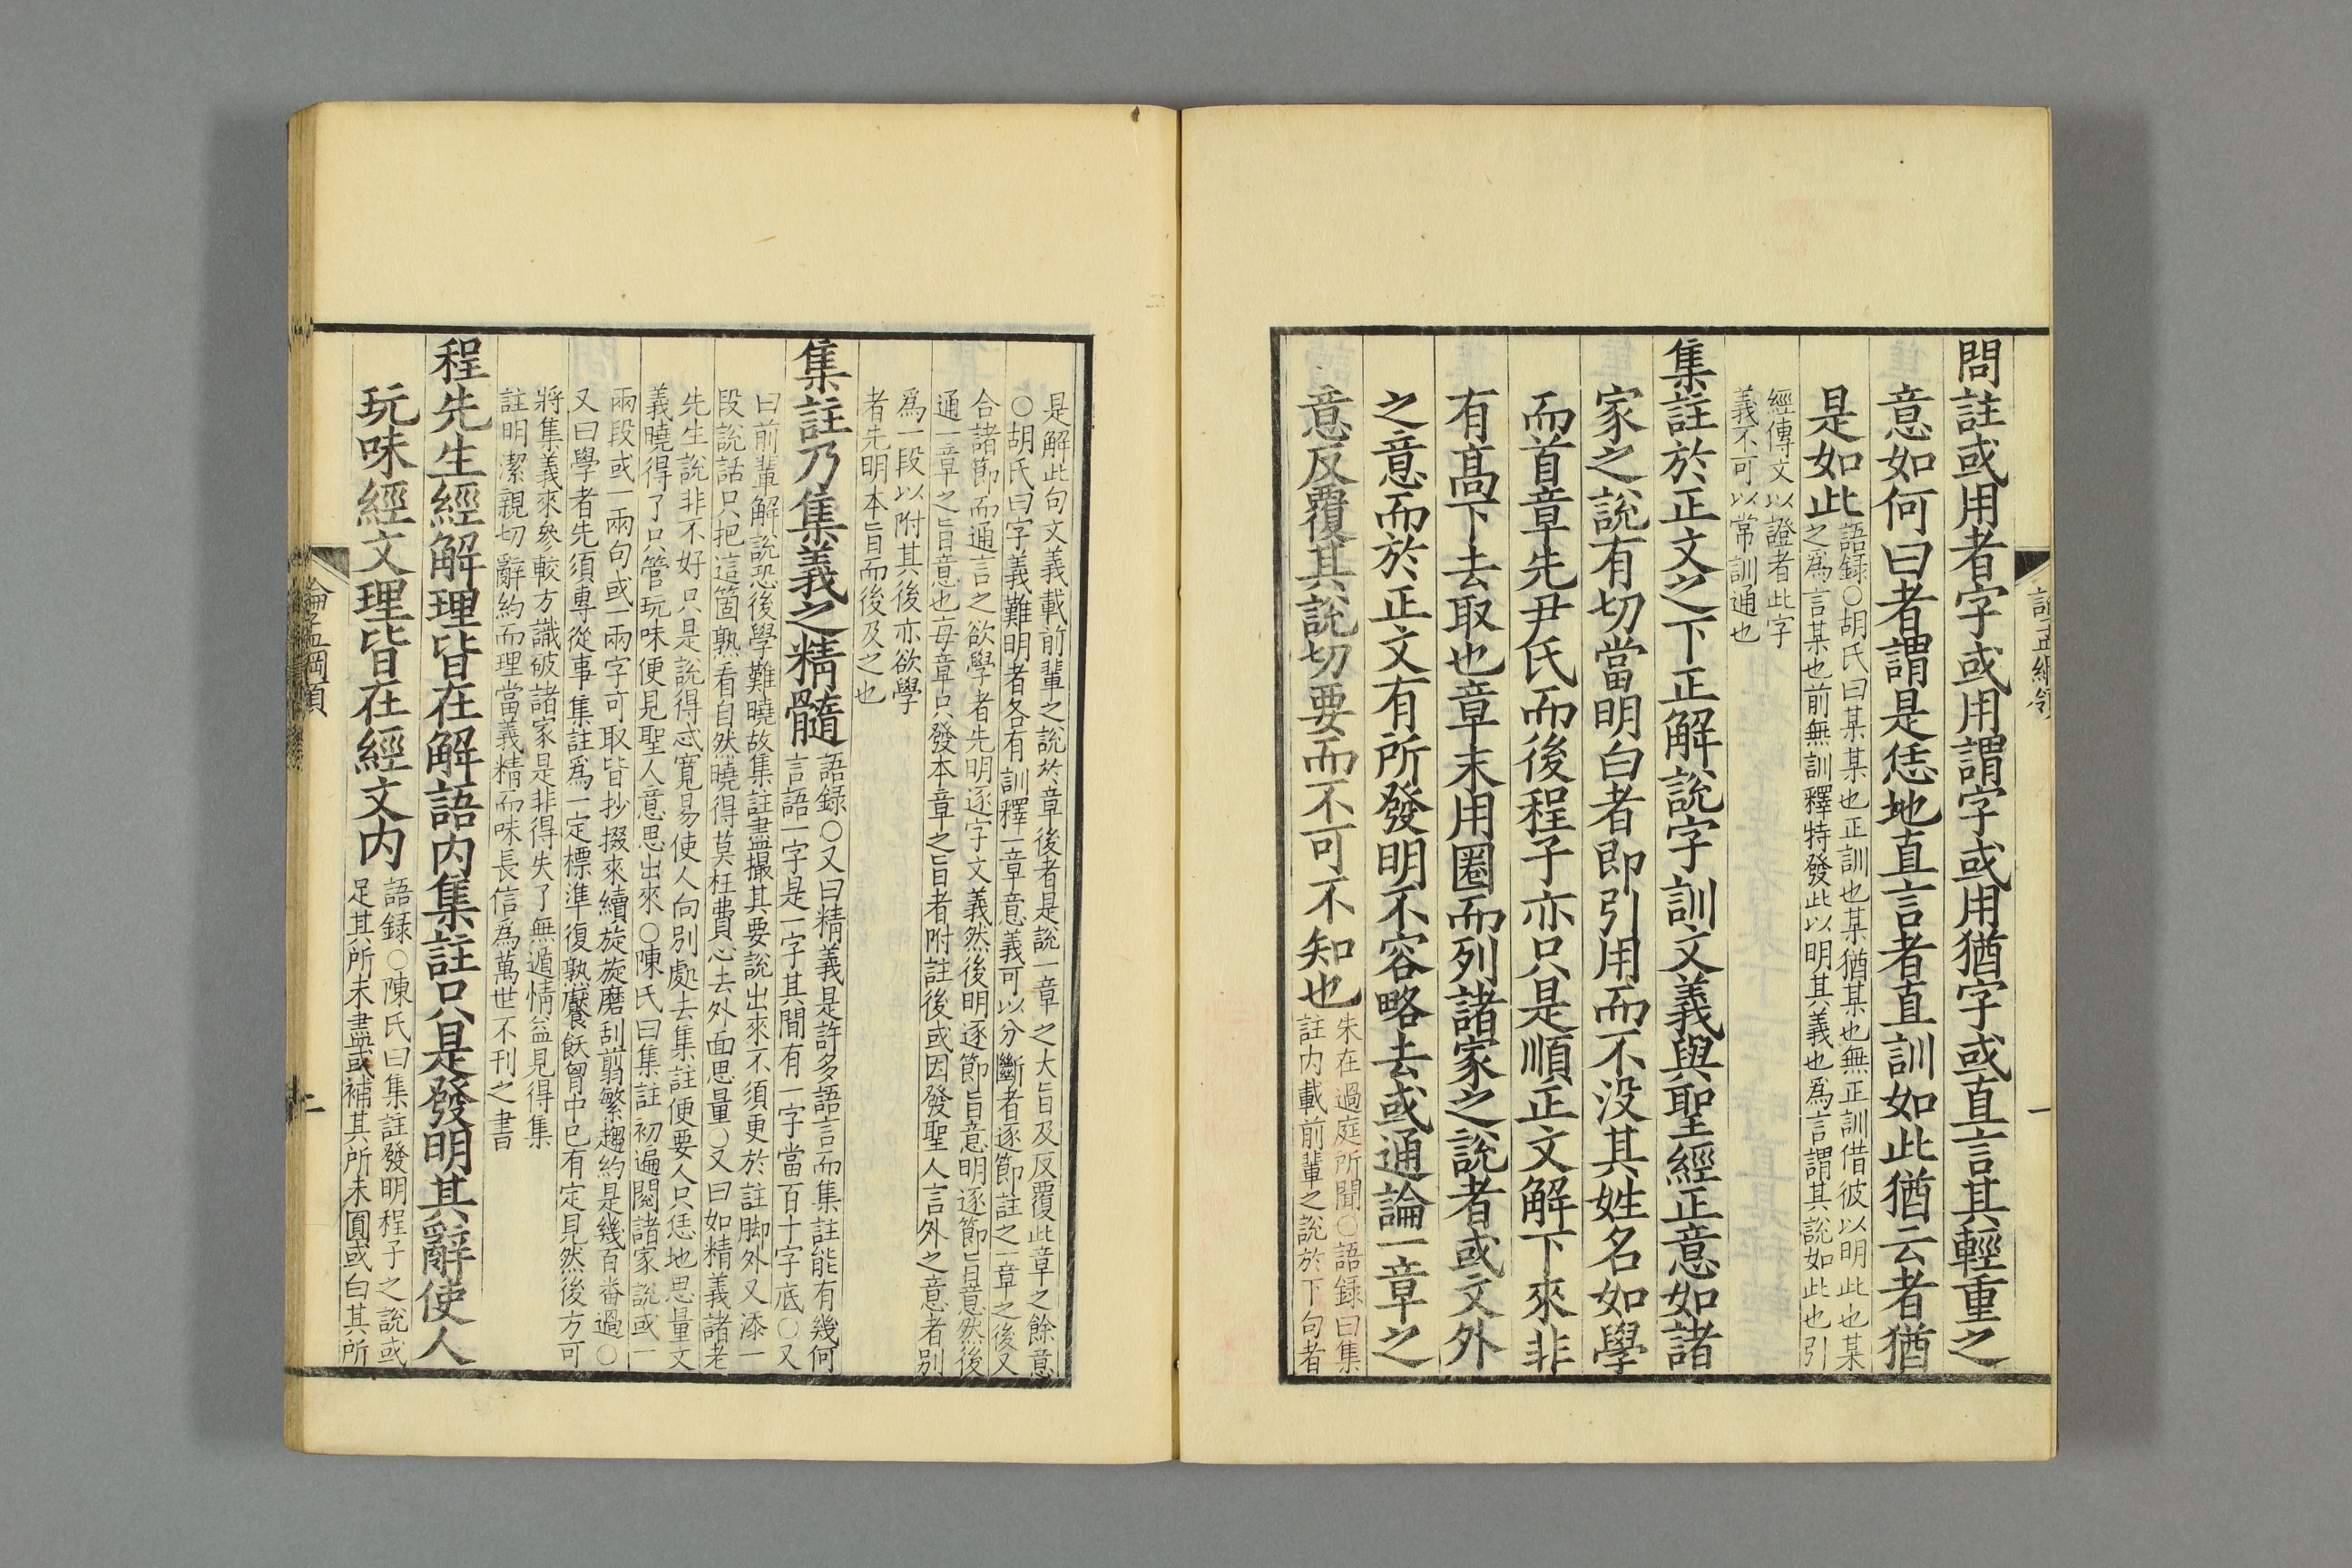 問註或用者字或用謂字或用猶字或直言其輕重之
意如何曰者謂是恁地直言者直訓如此猶云者猶
是如此
語録○胡氏曰某某也正訓也某猶某也無正訓借彼以明此也某
之爲言某也前無訓釋特發此以明其義也爲言謂其說如此也引
經傳文以證者此字
義不可以常訓通也
集註於正文之下正解說字訓文義與聖經正意如諸
家之說有切當明白者即引用而不没其姓名如學
而首章先尹氏而後程子亦只是順正文解下來非
有高下去取也章末用圈而列諸家之說者或文外
之意而於正文有所發明不容略去或通論一章之
意反覆其說切要而不可不知也
朱在過庭所聞○語録曰集
註内載前輩之說於下句者
是解此句文義載前輩之說於章後者是說一章之大旨及反覆此章之餘意
○胡氏曰字義難明者各有訓釋一章意義可以分斷者逐節註之一章之後又
合諸節而通言之欲學者先明逐字文義然後明逐節旨意明逐節旨意然後
通一章之旨意也每章只發本章之旨者附註後或因發聖人言外之意者別
爲一段以附其後亦欲學
者先明本旨而後及之也
集註乃集義之精髓
語録○又曰精義是許多語言而集註能有幾何
言語一字是一字其間有一字當百十字底○又
曰前輩解說恐後學難曉故集註盡撮其要說出來不須更於註脚外又添一
段說話只把這箇熟看自然曉得莫枉費心去外面思量○又曰如精義諸老
先生說非不好只是說得忒寛易使人向別處去集註便要人只恁地思量文
義曉得了只管玩味便見聖人意思出來○陳氏曰集註初遍閱諸家說或一
兩段或一兩句或一兩字可取皆抄掇來續旋旋磨刮翦繁趨約是幾百番過○
又曰學者先須專從事集註爲一定標準復熟饜飫胷中已有定見然後方可
將集義來參較方識破諸家是非得失了無遁情益見得集
註明潔親切辭約而理當義精而味長信爲萬世不刊之書
程先生經解理皆在解語内集註只是發明其辭使人
玩味經文理皆在經文内
語録○陳氏曰集註發明程子之說或
足其所未盡或補其所未圓或白其所
論孟綱領
二